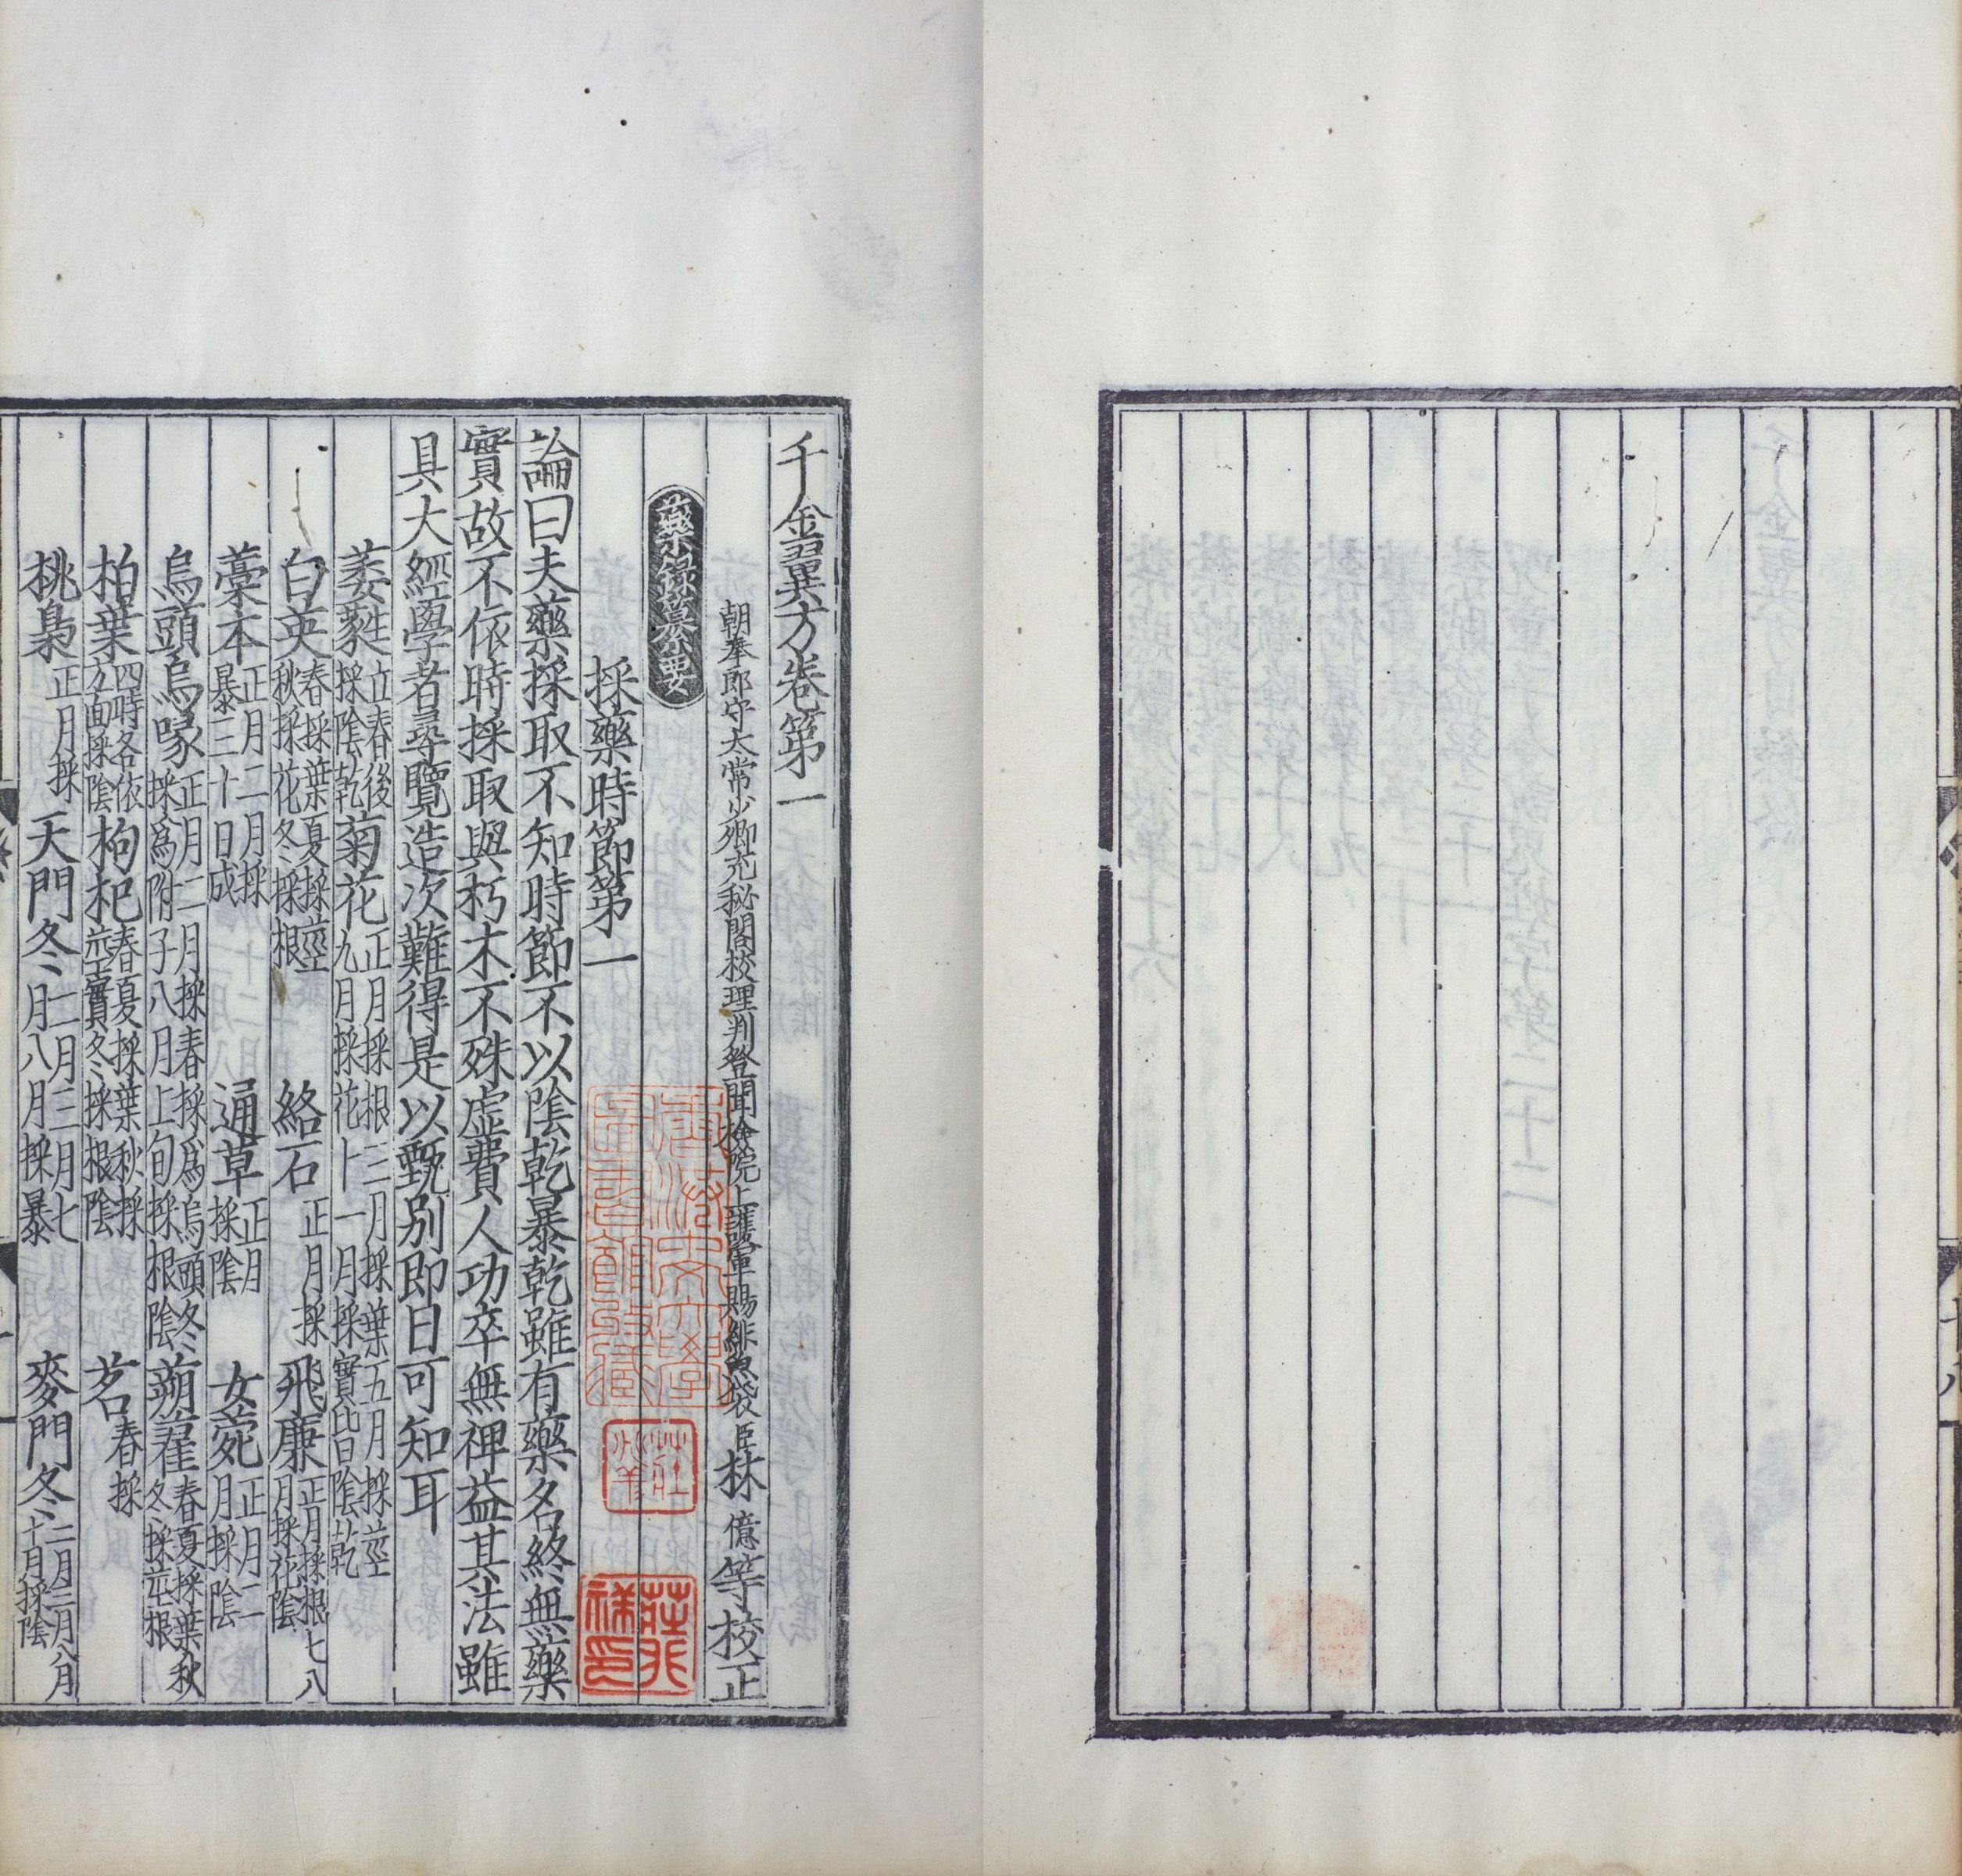 千金翼方卷第一
朝奉郎守太常少卿充秘閣校理判登聞檢院上護軍賜緋魚袋臣林億等校正
藥錄纂要
採藥時節第一
論曰夫藥採取不知時節不以陰乾暴乾雖有藥名終無藥
實故不依時採取與朽木不殊虛費人功卒無裨益其法雖
具大經學者尋覽造次難得是以甄別即日可知耳
萎蕤立春後採陰乾菊花正月採根三月採葉五月採莖九月採花十一月採實皆陰乾
白英春採葉夏採莖秋採花冬採根絡石正月採飛廉正月採根七八月採花陰
藁本正月二月採暴三十日成通草正月採陰女菀正月二月採陰
烏頭烏喙正月二月採春採爲烏頭冬採爲附子八月上旬採根陰蒴藋春夏採葉秋冬採莖根
柏葉四時各依方面採陰枸杞春夏採葉秋採莖實冬採根陰茗春採
桃梟正月採天門冬二月三月七月八月採暴麥門冬二月三月八月十月採陰
莊
莊
祥
印